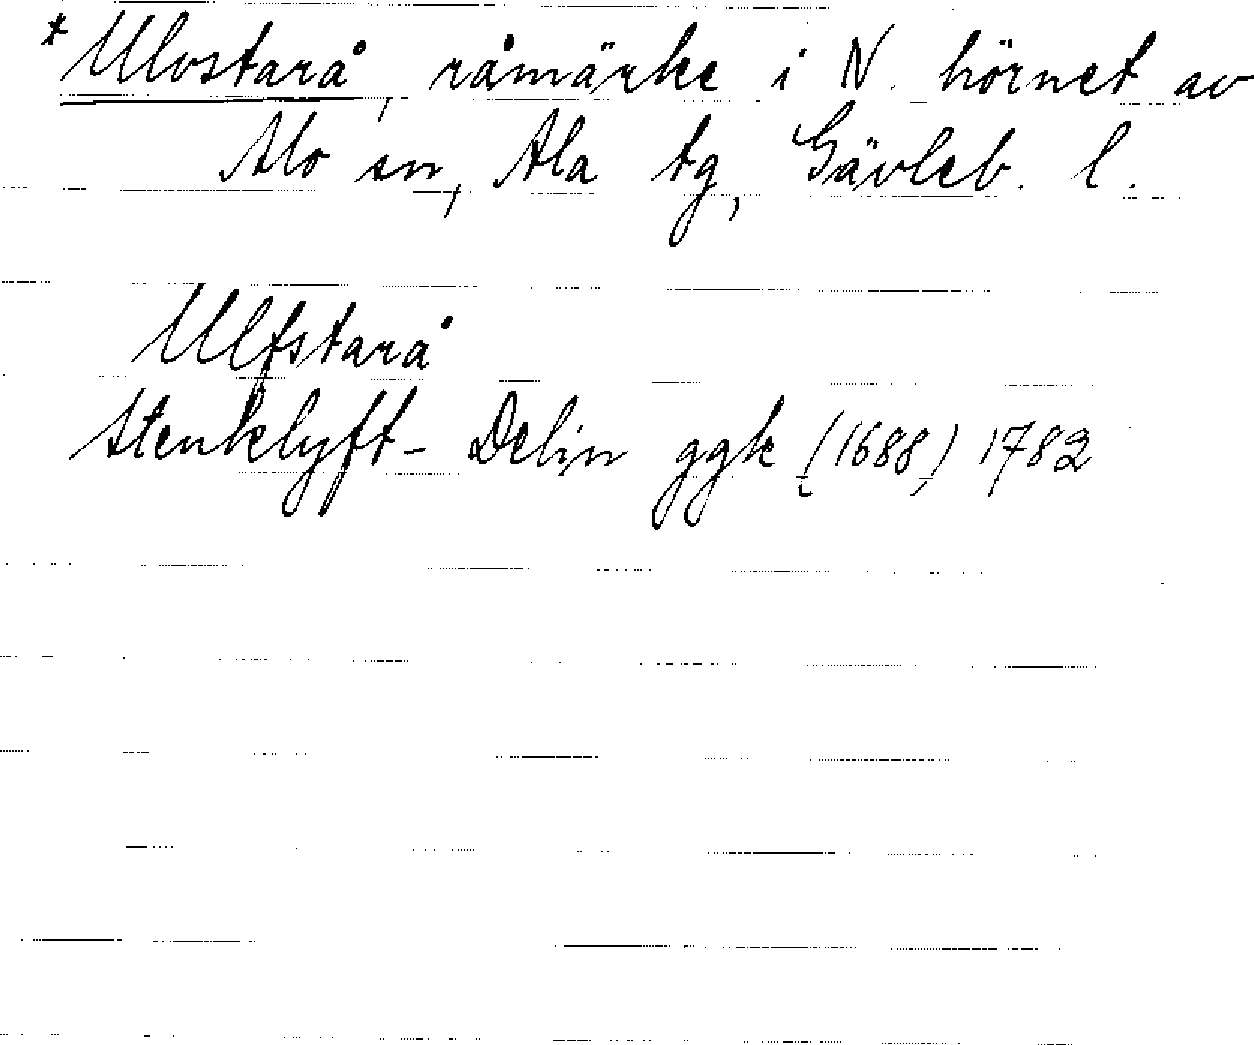 *Ulvstarå, råmärke i N. hörnet av
Alo sn, Ala tg, Gävleb. l.
Ulfstarå
Stenklyft- Delin ggk (1688) 1782